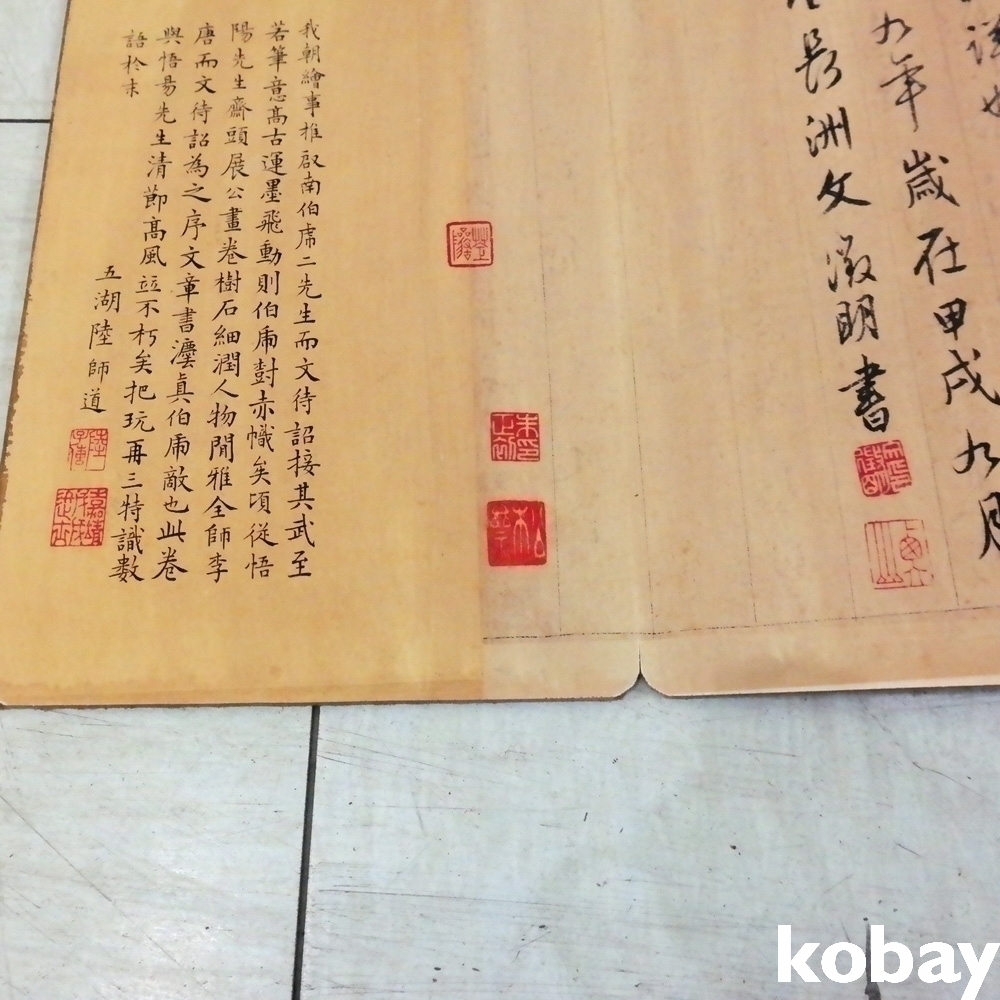 詳也
九年歲在甲戌九月
長洲文徵明書
我朝繪事推啟南伯虎二先生而文待詔接其武至
若筆意高古運墨飛動則伯虎對赤幟矣頃從悟
陽先生齋頭展公畫卷樹石細潤人物閒雅全師李
唐而文待詔為之序文章書瀍真伯虎敵也此卷
與悟易先生清節高風竝不朽矣把玩再三特識數
語於末
五湖陸師道
kobay